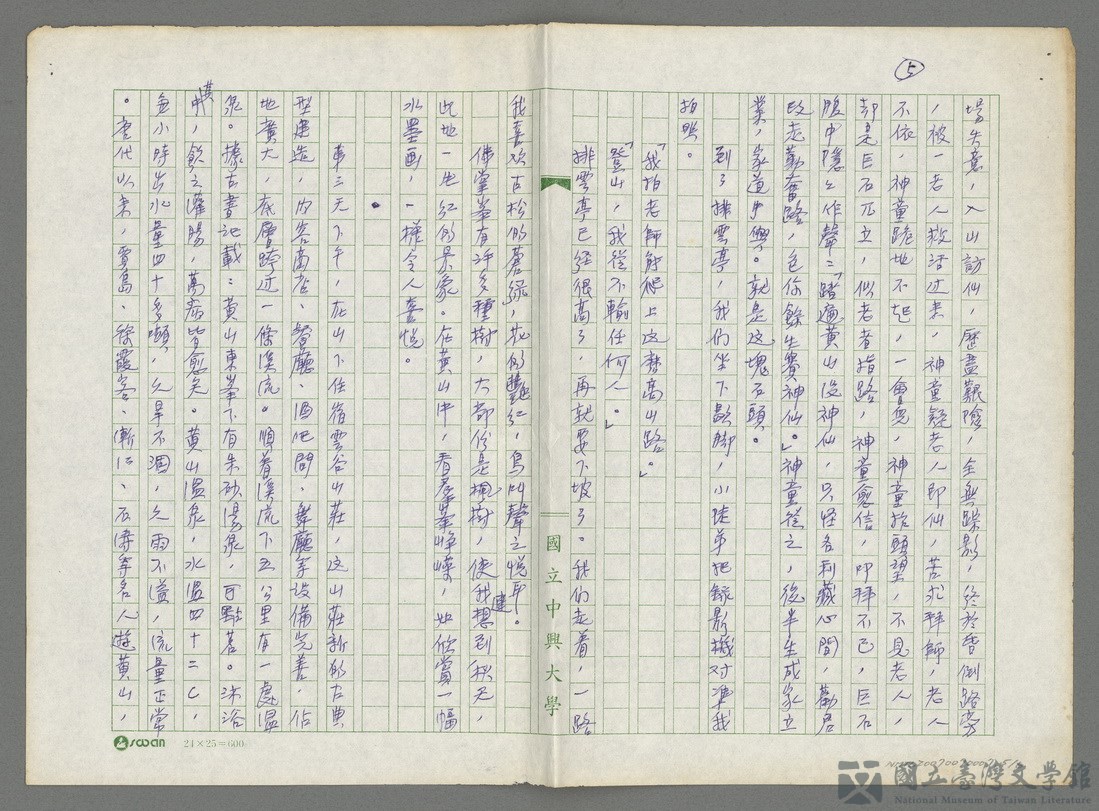 上
場失意，入山訪仙，歷盡艱險，全無踪影，終於昏倒路旁
，被一老人救活过来，神童疑老人即仙，苦求拜師，老人
不依，神童跪地不起，一會兒，神童抬頭望，不見老人，
却是巨石兀立，似老者指路，神童愈信，叩拜不已，巨石
腹中隱々作聲：「踏遍黃山没神仙，只怪名利藏心間，勸君
改走勤奮路，包你餘生賽神仙。」神童從之，後半生成家立
業，家道中興。就是这塊石頭。
到了排雲亭，我们坐下歇脚，小陡单把錄影機对準我
拍照。
「我拍老師能爬上这麽高山路。」
「登山，我從不輸任何人。」
排雲亭已經很高了，再就要下坡了。我们走着，一路
我喜欢古松的蒼綠，花的艷紅，鳥叫聲之悅耳。
佛掌峯有许多種樹，大部份是楓樹，使我想到秋天，
此地一片紅的景象。在黃山中，看羣峯峥嶸，如欣賞一幅
水墨画，一樣令人喜悅。
車三天下午，在山下住宿雲谷山莊，这山莊新的古典
型建造，内容商店、餐廳、酒吧間、舞廳等设備完善，佔
地廣大，底層跨过一條溪流。順着溪流下五公里有一處温
泉。據古書记載：黃山東峯下有朱砂湯泉，可點茗。沐浴
其中，飲之灌腸，萬病皆愈矣。黃山温泉，水温四十二C，
每小時出水量四十多噸，久旱不涸，久雨不溢，流量正常
。唐代以来，賈島、徐霞客、漸江、石濤等名人遊黃山，
國立中興大學
swan
24×25=600
國立臺灣文學館
National Museum of Taiwan Literature